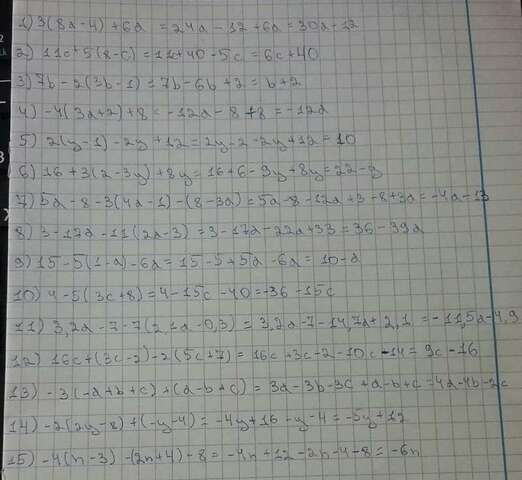 1) 3(8a-4)+6a = 24a-12+6a=30a-12
2) 11c+5(8-c)=11c+40-5c=6c+40
3) 7b-2(3b-1)=7b-6b+2=b+2
4) -4(3a+2)+8=-12a-8+8=-12a
5) 2(y-1)-2y+12=2y-2-2y+12=10
6) 16+3(2-3y)+8y=16+6-9y+8y=22-y
7) 5a-8-3(4a-1)-(8-3a)=5a-8-12a+3-8+3a=-4a-13
8) 3-17a-11(2a-3)=3-17a-22a+33=36-39a
9) 15-5(1-a)-6a=15-5+5a-6a=10-a
10) 4-5(3c+8)=4-15c-40=-36-15c
11) 3,2a-7-7(2,1a-0,3)=3,2a-7-14,7a+2,1=-11,5a-4,9
12) 16c+(3c-2)-2(5c+7)=16c+3c-2-10c-14=9c-16
13) -3(-a+b+c)+(a-b+c)=3a-3b-3c+a-b+c=4a-4b-2c
14) -2(2y-8)+(-y-4)=-4y+16-y-4=-5y+12
15) -4(n-3)-(2n+4)-8=-4n+12-2n-4-8=-6n